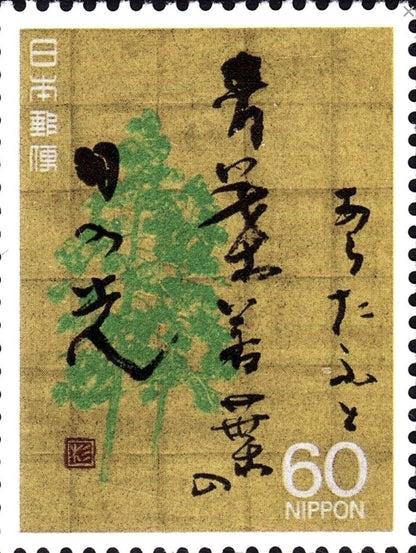 日本郵便
あらたふと
青葉若葉の
日の光
60
NIPPON